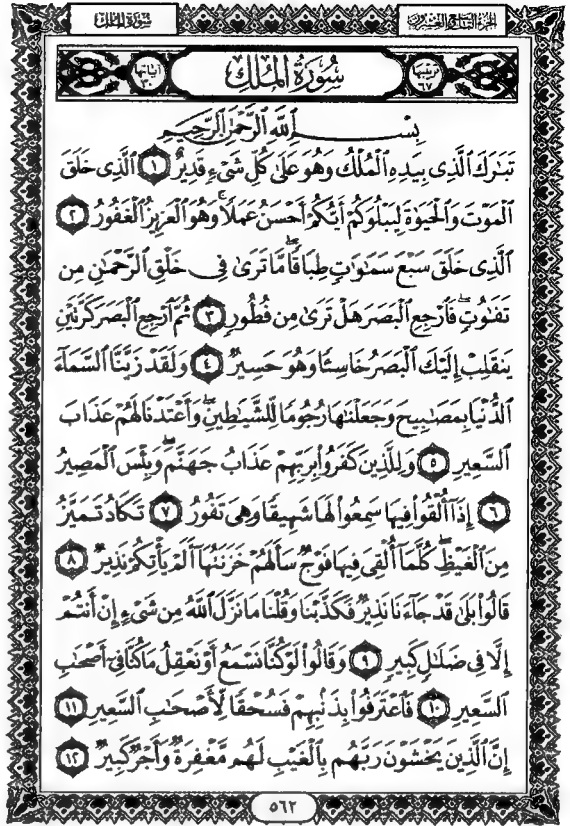 سُورَةُ المُلْكِ
الجُزْءُ التَّاسِعُ وَالعِشْرُونَ
ترتيبها ٦٧
سُورَةُ المُلْكِ
آياتها ٣٠
بِسْمِ ٱللَّهِ ٱلرَّحْمَٰنِ ٱلرَّحِيمِ
تَبَٰرَكَ ٱلَّذِى بِيَدِهِ ٱلْمُلْكُ وَهُوَ عَلَىٰ كُلِّ شَىْءٍ قَدِيرٌ ١ ٱلَّذِى خَلَقَ
ٱلْمَوْتَ وَٱلْحَيَوٰةَ لِيَبْلُوَكُمْ أَيُّكُمْ أَحْسَنُ عَمَلًا ۚ وَهُوَ ٱلْعَزِيزُ ٱلْغَفُورُ ٢
ٱلَّذِى خَلَقَ سَبْعَ سَمَٰوَٰتٍ طِبَاقًا ۖ مَّا تَرَىٰ فِى خَلْقِ ٱلرَّحْمَٰنِ مِن
تَفَٰوُتٍ ۖ فَٱرْجِعِ ٱلْبَصَرَ هَلْ تَرَىٰ مِن فُطُورٍ ٣ ثُمَّ ٱرْجِعِ ٱلْبَصَرَ كَرَّتَيْنِ
يَنقَلِبْ إِلَيْكَ ٱلْبَصَرُ خَاسِئًا وَهُوَ حَسِيرٌ ٤ وَلَقَدْ زَيَّنَّا ٱلسَّمَآءَ
ٱلدُّنْيَا بِمَصَٰبِيحَ وَجَعَلْنَٰهَا رُجُومًا لِّلشَّيَٰطِينِ ۖ وَأَعْتَدْنَا لَهُمْ عَذَابَ
ٱلسَّعِيرِ ٥ وَلِلَّذِينَ كَفَرُوا۟ بِرَبِّهِمْ عَذَابُ جَهَنَّمَ ۖ وَبِئْسَ ٱلْمَصِيرُ
٦ إِذَآ أُلْقُوا۟ فِيهَا سَمِعُوا۟ لَهَا شَهِيقًا وَهِىَ تَفُورُ ٧ تَكَادُ تَمَيَّزُ
مِنَ ٱلْغَيْظِ ۖ كُلَّمَآ أُلْقِىَ فِيهَا فَوْجٌ سَأَلَهُمْ خَزَنَتُهَآ أَلَمْ يَأْتِكُمْ نَذِيرٌ ٨
قَالُوا۟ بَلَىٰ قَدْ جَآءَنَا نَذِيرٌ فَكَذَّبْنَا وَقُلْنَا مَا نَزَّلَ ٱللَّهُ مِن شَىْءٍ إِنْ أَنتُمْ
إِلَّا فِى ضَلَٰلٍ كَبِيرٍ ٩ وَقَالُوا۟ لَوْ كُنَّا نَسْمَعُ أَوْ نَعْقِلُ مَا كُنَّا فِىٓ أَصْحَٰبِ
ٱلسَّعِيرِ ١٠ فَٱعْتَرَفُوا۟ بِذَنۢبِهِمْ فَسُحْقًا لِّأَصْحَٰبِ ٱلسَّعِيرِ ١١
إِنَّ ٱلَّذِينَ يَخْشَوْنَ رَبَّهُم بِٱلْغَيْبِ لَهُم مَّغْفِرَةٌ وَأَجْرٌ كَبِيرٌ ١٢
٥٦٢